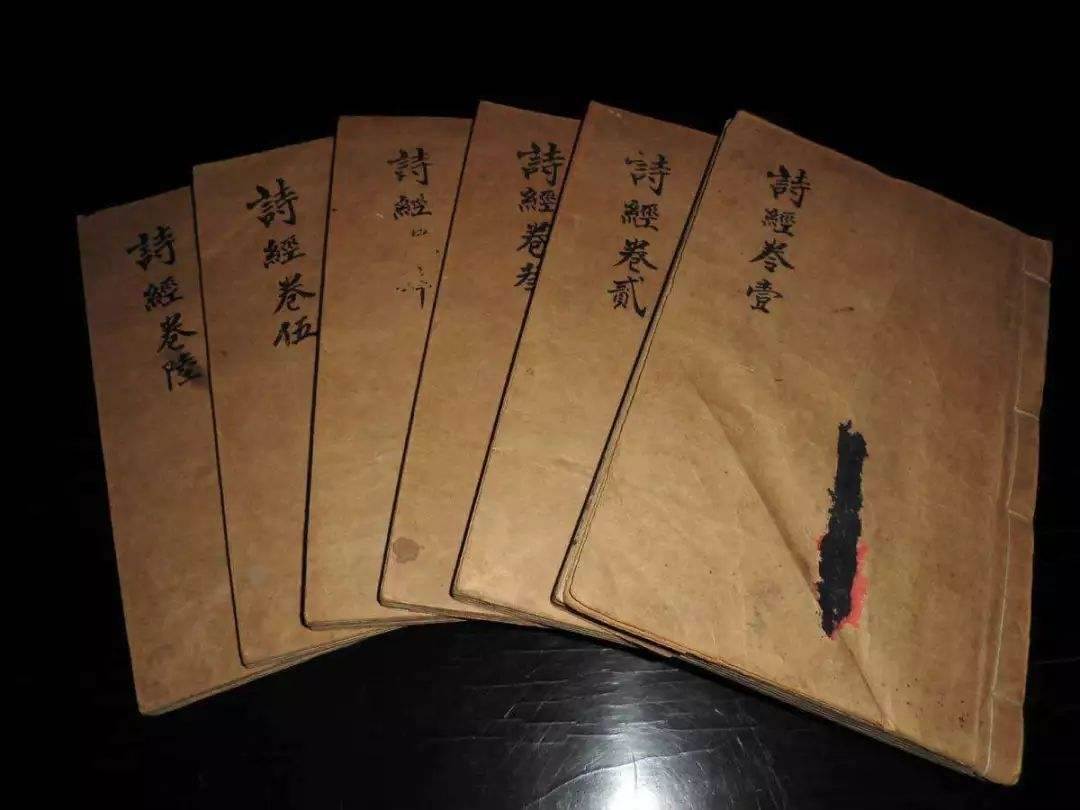 詩經卷壹
詩經卷貳
詩經卷
詩經
詩經卷伍
詩經卷陸